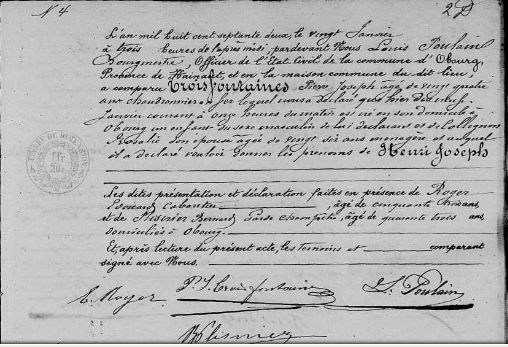 N° 4
L'an mil huit cent septante deux, le vingt Janvier
à trois heures de l'après midi, pardevant Nous Louis Poulain
Bourgmestre, Officier de l'Etat Civil de la commune d'Obourg,
Province de Hainaut, et en la maison commune du dit lieu,
a comparu Troisfontaines Pierre Joseph âgé de vingt quatre
ans chaudronnier, lequel nous a déclaré que hier dix neuf
Janvier courant à onze heures du matin est né en son domicile à
Obourg un enfant du sexe masculin de lui déclarant et de Collegnon
Rosalie son épouse âgée de vingt six ans ménagère et auquel
il a déclaré vouloir donner les prénoms de Henri Joseph
Les dites présentation et déclaration faites en présence de Roger
Edouard Cabaretier, âgé de cinquante ans
et de Bernard Garde champêtre, âgé de quarante trois ans
domiciliés à Obourg.
Et, après lecture du présent acte, les témoins et comparant
signé avec Nous.
E. Roger P. J. Troisfontaine L. Poulain